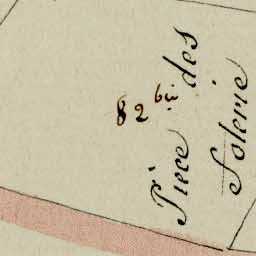 82 bis
Pièce des
Folerie